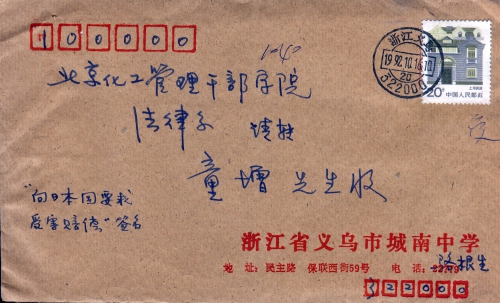 100000
浙江义乌
1992.10.16.10
20
322000
20分
中国人民邮政
上海民居
北京化工管理干部学院
法律系 请转
童增 先生收
"向日本国要求
受害赔偿"签名
浙江省义乌市城南中学
骆根生
地址：民主路 保联西街59号 电话：
322000